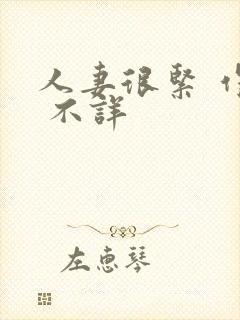 人妻很緊
不詳
左惠琴